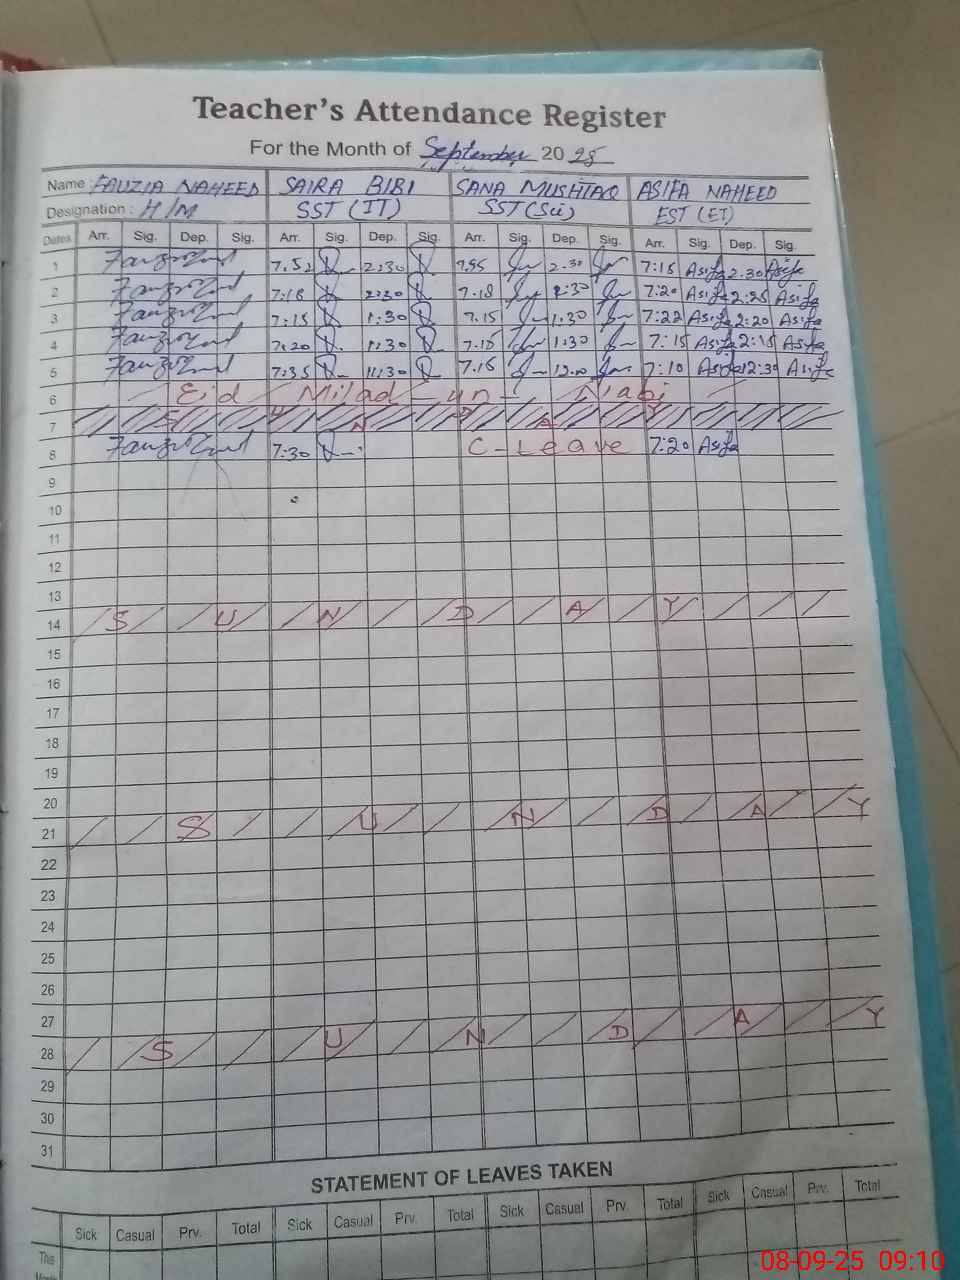 Teacher's Attendance Register
For the Month of September 2025
Name : FAUZIA NAHEED SAIRA BIBI SANA MUSHTAQ ASIFA NAHEED
Designation : H/M SST (IT) SST (Sci) EST (ET)
Dates Arr. Sig. Dep. Sig. Arr. Sig. Dep. Sig. Arr. Sig. Dep. Sig. Arr. Sig. Dep. Sig.
1 7.52 2:30 7.55 2.30 7:15 Asifa 2.30 Asifa
2 7:18 2:30 7.18 2:30 7:20 Asifa 2:25 Asifa
3 7:15 1:30 7.15 1:30 7:22 Asifa 2:20 Asifa
4 7:20 1:30 7.15 1:30 7:15 Asifa 2:15 Asifa
5 7:35 11:30 7.16 12.00 7:10 Asifa 12:30 Asifa
6 Eid Milad-un-Nabi
7 S U N D A Y
8 7:30 C-Leave 7:20 Asifa
9
10
11
12
13
14 S U N D A Y
15
16
17
18
19
20
21 S U N D A Y
22
23
24
25
26
27
28 S U N D A Y
29
30
31
STATEMENT OF LEAVES TAKEN
Sick Casual Prv. Total Sick Casual Prv. Total Sick Casual Prv. Total Sick Casual Prv. Total
This
Month
08-09-25 09:10